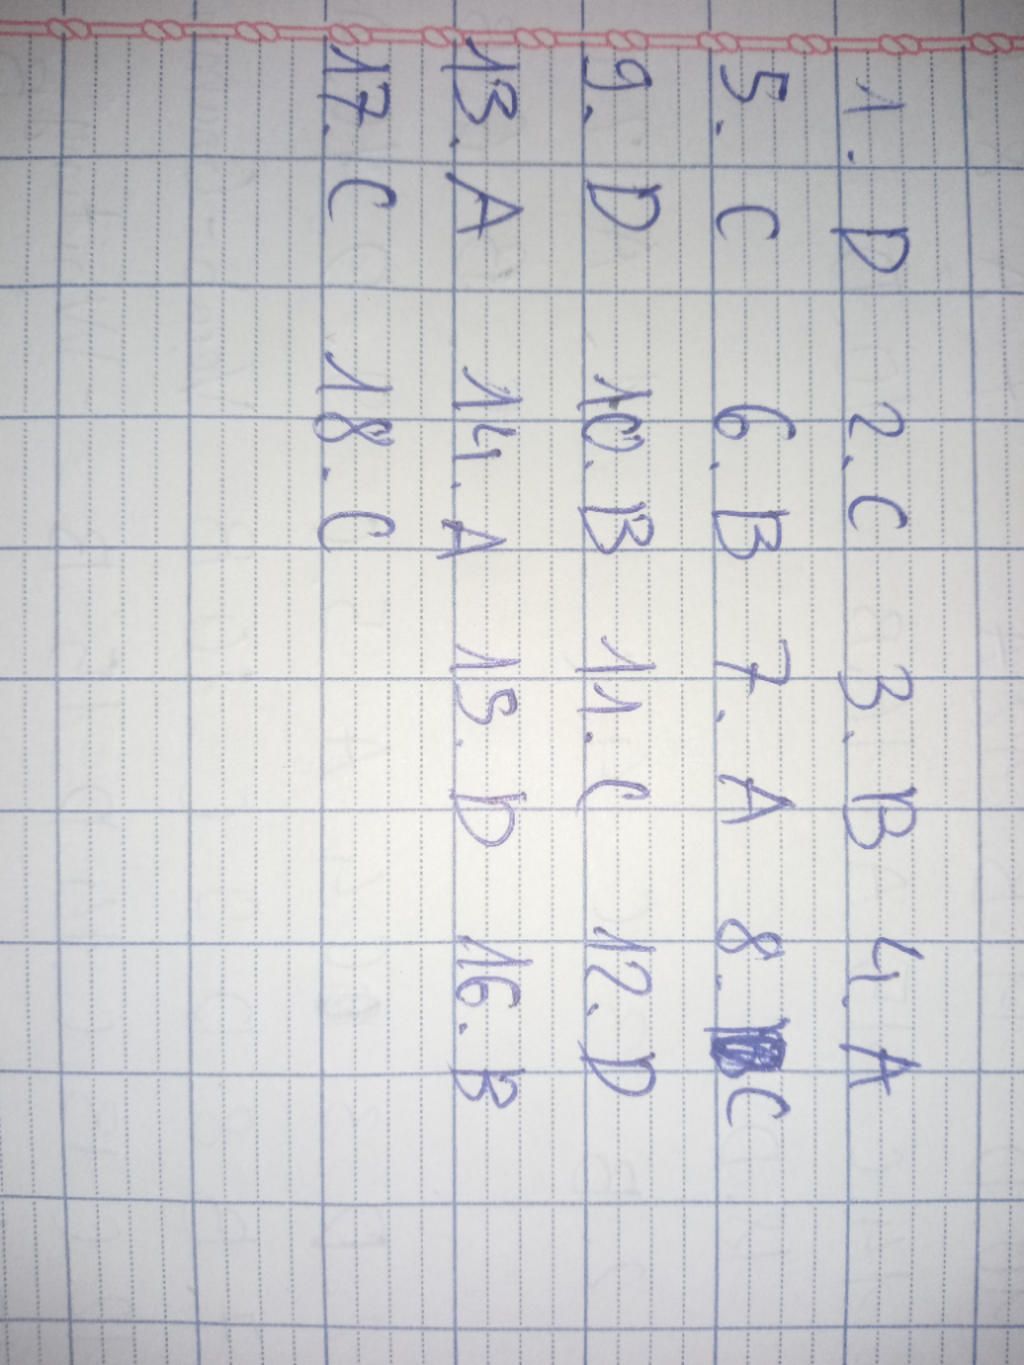 1. D 2. C 3. B 4. A
5. C 6. B 7. A 8. C
9. D 10. B 11. C 12. D
13. A 14. A 15. D 16. B
17. C 18. C